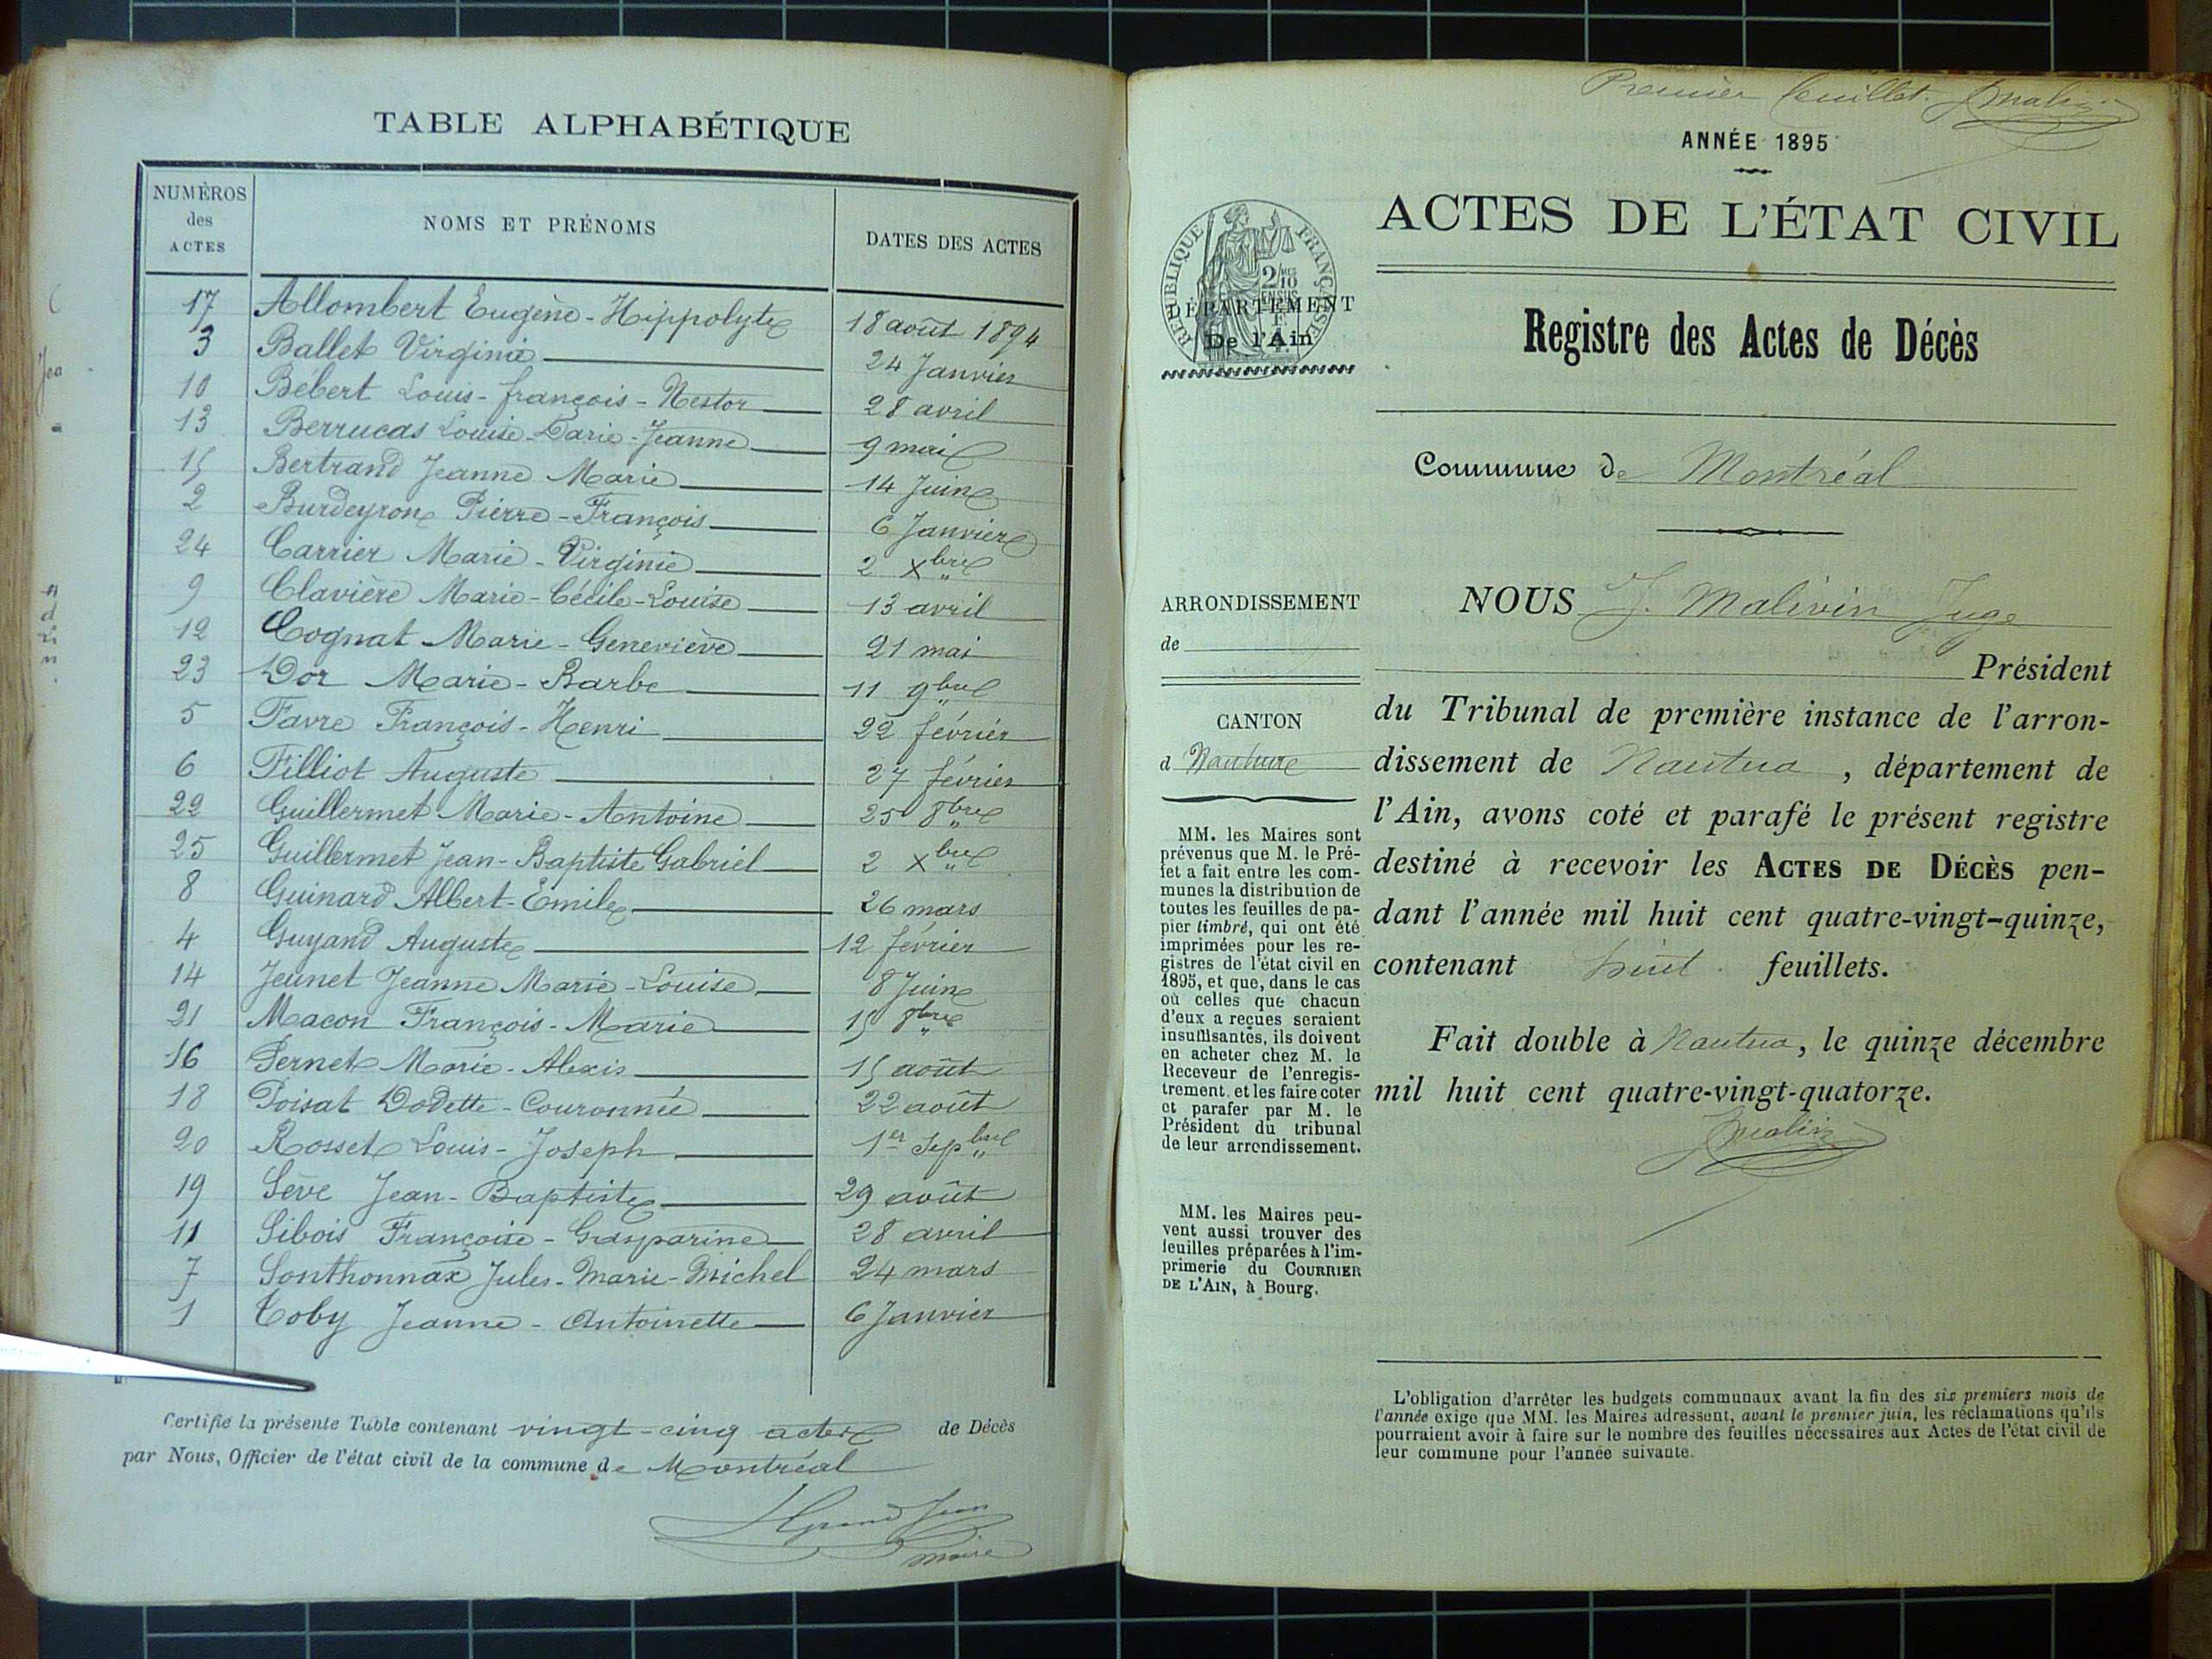 TABLE ALPHABÉTIQUE
NUMÉROS des ACTES
NOMS ET PRÉNOMS
DATES DES ACTES
17 Allombert Eugène-Hippolyte 18 août 1894
3 Ballet Virginie 24 Janvier
10 Bébert Louis-françois-Nestor 28 avril
13 Berrucas Louise-Marie-Jeanne 9 mai
15 Bertrand Jeanne Marie 14 Juin
2 Burdeyron Pierre-François 6 Janvier
24 Carrier Marie-Virginie 2 Xbre
9 Clavière Marie-Cécile-Louise 13 avril
12 Cognat Marie-Geneviève 21 mai
23 Dor Marie-Barbe 11 9bre
5 Favre François-Henri 22 février
6 Filliot Auguste 27 février
22 Guillermet Marie-Antoine 25 8bre
25 Guillermet Jean-Baptiste Gabriel 2 Xbre
8 Guinard Albert-Emile 26 mars
4 Guyand Auguste 12 février
14 Jeunet Jeanne Marie-Louise 8 Juin
21 Macon François-Marie 15 8bre
16 Pernet Marie-Alexis 15 août
18 Poisat Dodette-Couronnée 22 août
20 Rosset Louis-Joseph 1er Sepbre
19 Sève Jean-Baptiste 29 août
11 Sibois Françoise-Gasparine 28 avril
7 Sonthonnax Jules-Marie-Michel 24 mars
1 Toby Jeanne-Antoinette 6 Janvier
Certifié la présente Table contenant vingt-cinq actes de Décès
par Nous, Officier de l'état civil de la commune de Montréal
Grand Jean
maire
Premier feuillet.
ANNÉE 1895
ACTES DE L'ÉTAT CIVIL
RÉPUBLIQUE FRANÇAISE
DÉPARTEMENT
De l'Ain
Registre des Actes de Décès
Commune de Montréal
ARRONDISSEMENT
de
CANTON
d Nantua
MM. les Maires sont
prévenus que M. le Pré-
fet a fait entre les com-
munes la distribution de
toutes les feuilles de pa-
pier timbré, qui ont été
imprimées pour les re-
gistres de l'état civil en
1895, et que, dans le cas
où celles que chacun
d'eux a reçues seraient
insuffisantes, ils doivent
en acheter chez M. le
Receveur de l'enregis-
trement, et les faire coter
et parafer par M. le
Président du tribunal
de leur arrondissement.
MM. les Maires peu-
vent aussi trouver des
feuilles préparées à l'im-
primerie du COURRIER
DE L'AIN, à Bourg.
NOUS J. Malivin Juge
Président
du Tribunal de première instance de l'arron-
dissement de Nantua, département de
l'Ain, avons coté et parafé le présent registre
destiné à recevoir les ACTES DE DÉCÈS pen-
dant l'année mil huit cent quatre-vingt-quinze,
contenant huit feuillets.
Fait double à Nantua, le quinze décembre
mil huit cent quatre-vingt-quatorze.
L'obligation d'arrêter les budgets communaux avant la fin des six premiers mois de
l'année exige que MM. les Maires adressent, avant le premier juin, les réclamations qu'ils
pourraient avoir à faire sur le nombre des feuilles nécessaires aux Actes de l'état civil de
leur commune pour l'année suivante.